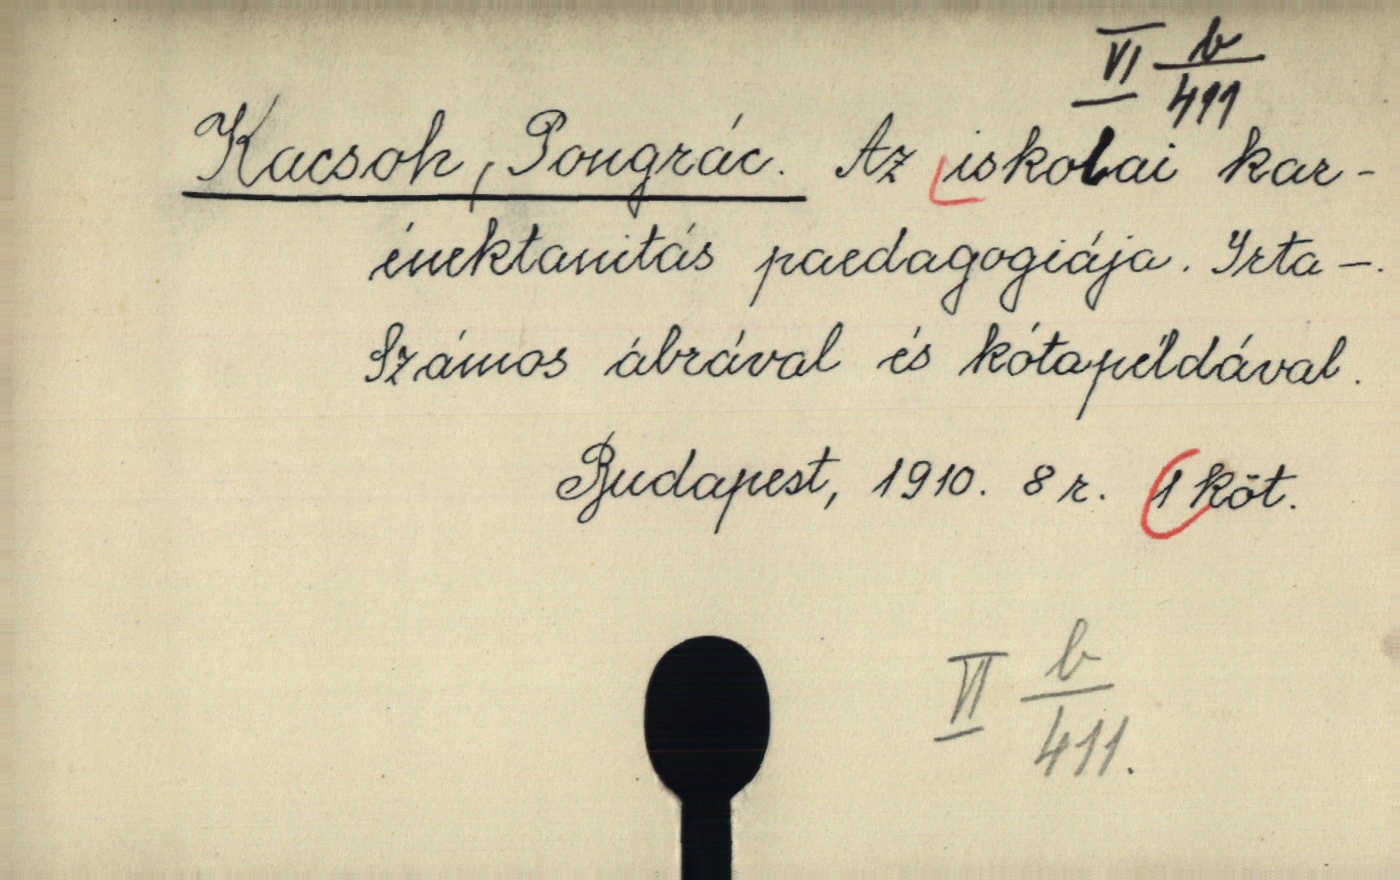 VI b/411
Kacsoh, Pongrác. Az iskolai kar-
énektanitás paedagogiája. Irta —.
Számos ábrával és kótapéldával.
Budapest, 1910. 8 r. 1 köt.
VI b/411.